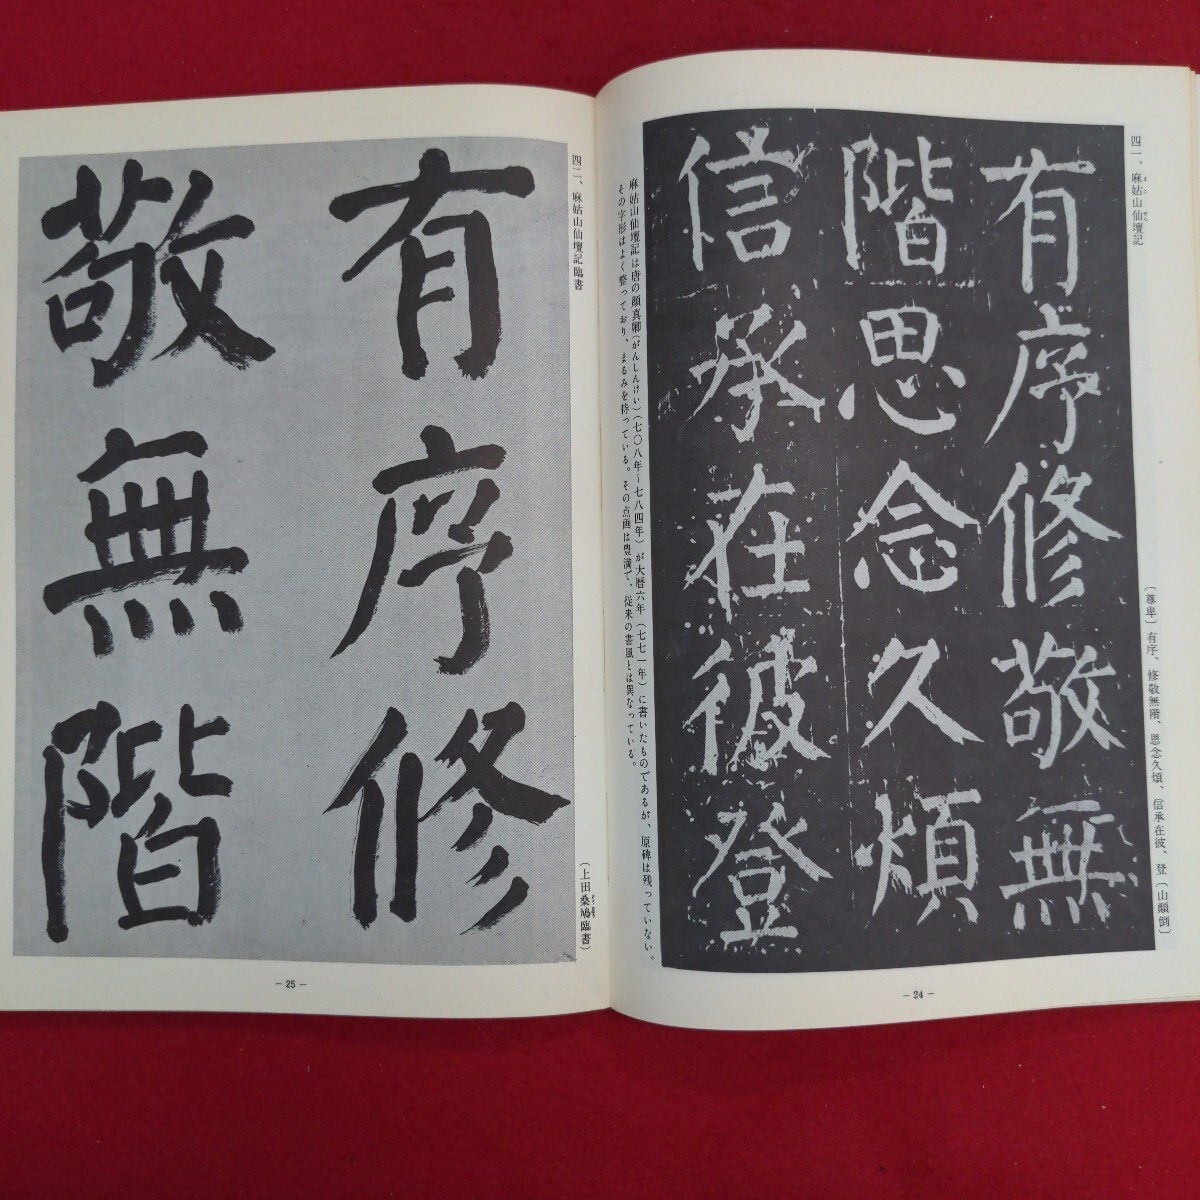 四一、麻姑山仙壇記
有序修敬無
階恩念久煩
信承在彼登
〔尊卑〕有序、修敬無階、恩念久煩、信承在彼、登〔山顛倒〕
麻姑山仙壇記は唐の顔真卿(がんしんけい)(七〇八年〜七八四年)が大暦六年(七七一年)に書いたものであるが、原碑は残っていない。
その字形はよく整っており、まるみを持っている。その点画は豊満で、従来の書風とは異なっている。
— 24 —
四二、麻姑山仙壇記臨書
有序修
敬無階
(上田桑鳩臨書)
— 25 —